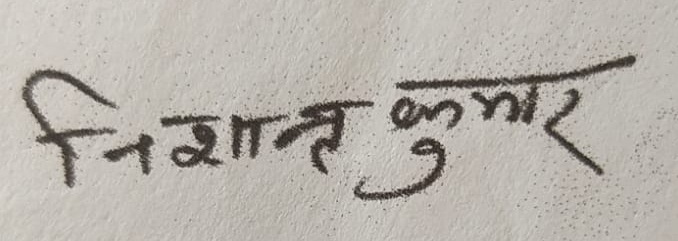 निशान्त कुमार